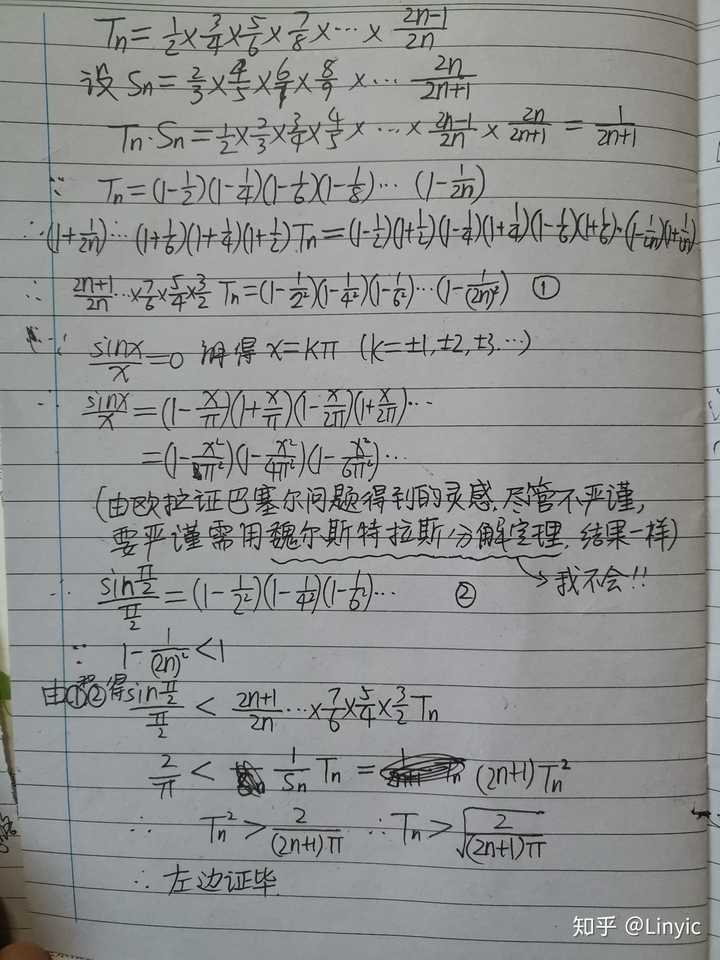 Tn = 1/2 × 3/4 × 5/6 × 7/8 × ⋯ × (2n-1)/2n
设 Sn = 2/3 × 4/5 × 6/7 × 8/9 × ⋯ 2n/(2n+1)
Tn·Sn = 1/2 × 2/3 × 3/4 × 4/5 × ⋯ × (2n-1)/2n × 2n/(2n+1) = 1/(2n+1)
∵ Tn = (1-1/2)(1-1/4)(1-1/6)(1-1/8)⋯(1-1/2n)
∴ (1+1/2n)⋯(1+1/6)(1+1/4)(1+1/2)Tn = (1-1/2)(1+1/2)(1-1/4)(1+1/4)(1-1/6)(1+1/6)⋯(1-1/2n)(1+1/2n)
∴ (2n+1)/2n ⋯ × 7/6 × 5/4 × 3/2 Tn = (1-1/2²)(1-1/4²)(1-1/6²)⋯(1-1/(2n)²) ①
∵ sinx/x = 0 解得 x = kπ (k=±1,±2,±3⋯)
∴ sinx/x = (1-x/π)(1+x/π)(1-x/2π)(1+x/2π)⋯
= (1-x²/π²)(1-x²/4π²)(1-x²/6π²)⋯
(由欧拉证巴塞尔问题得到的灵感,尽管不严谨,
要严谨需用魏尔斯特拉斯分解定理,结果一样)
→我不会!!
∴ sin(π/2)/(π/2) = (1-1/2²)(1-1/4²)(1-1/6²)⋯ ②
∵ 1-1/(2n)² < 1
由①②得 sin(π/2)/(π/2) < (2n+1)/2n ⋯ × 7/6 × 5/4 × 3/2 Tn
2/π < 1/Sn Tn = (2n+1)Tn²
∴ Tn² > 2/((2n+1)π) ∴ Tn > √(2/((2n+1)π))
∴ 左边证毕
知乎 @Linyic